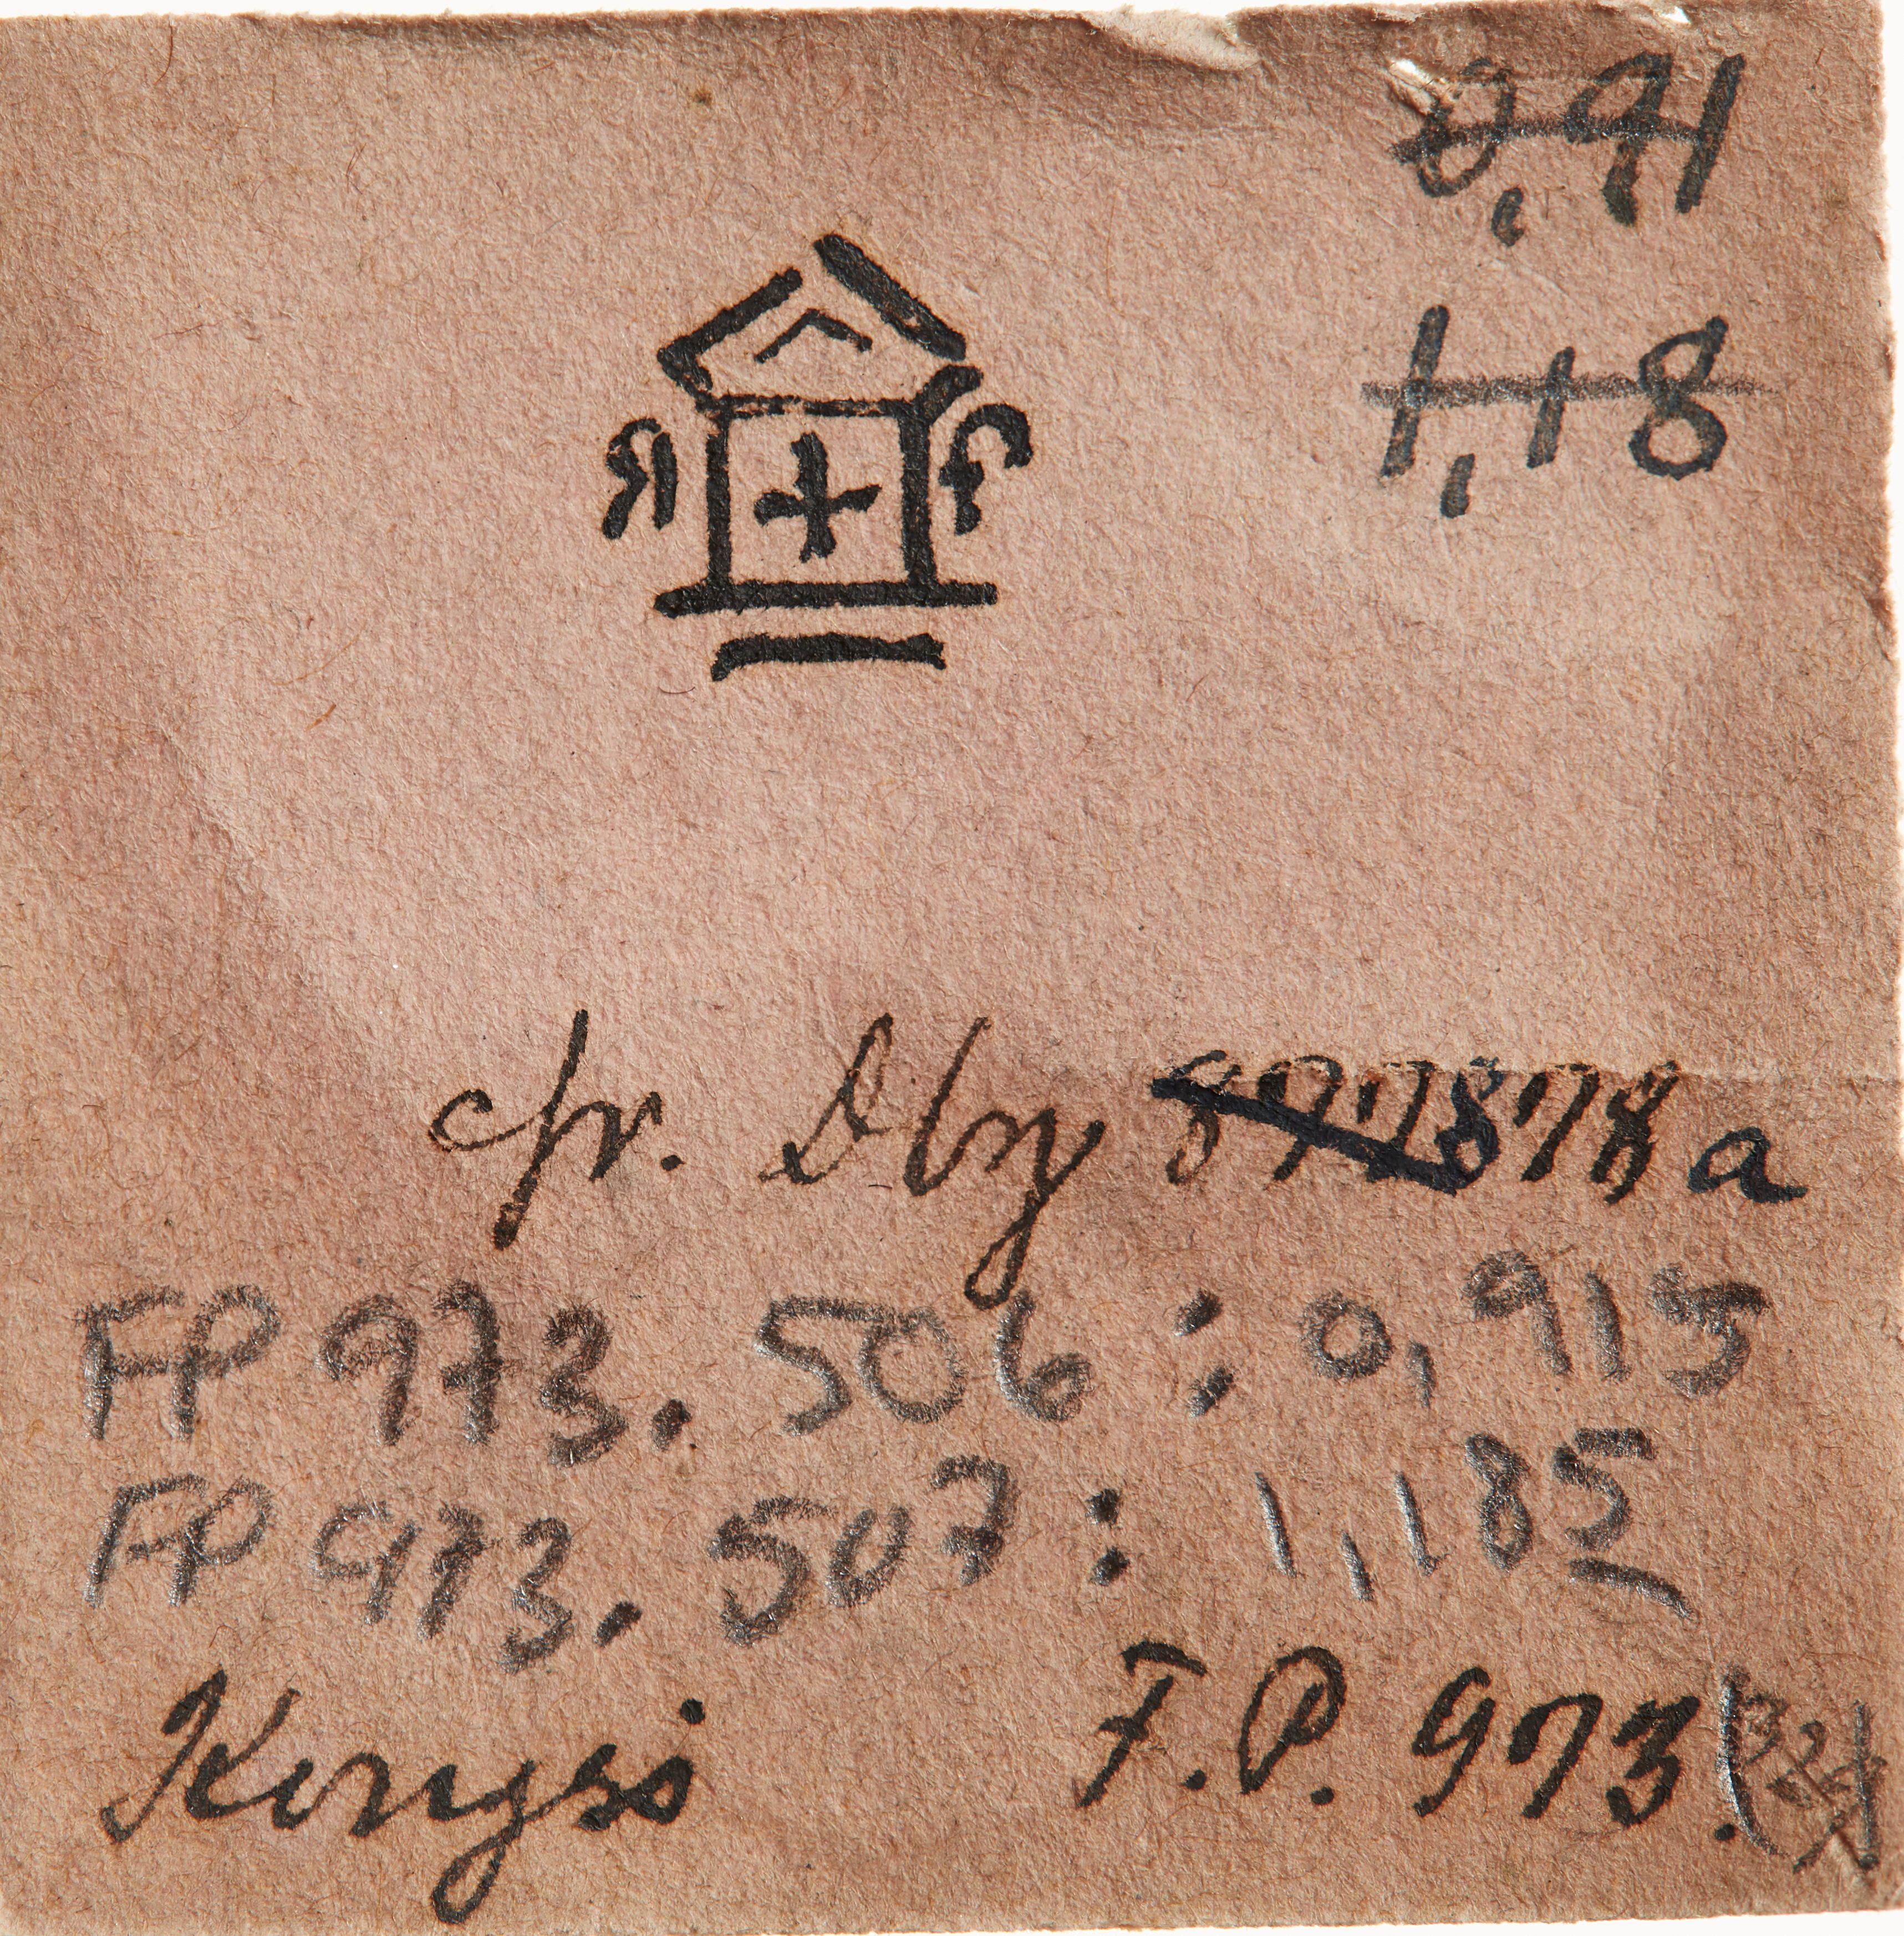 0,91
1,18
cfr. Dbg 877 878 a
FP 973. 506 : 0,915
FP 973. 507 : 1,185
Kongso F.P. 973.